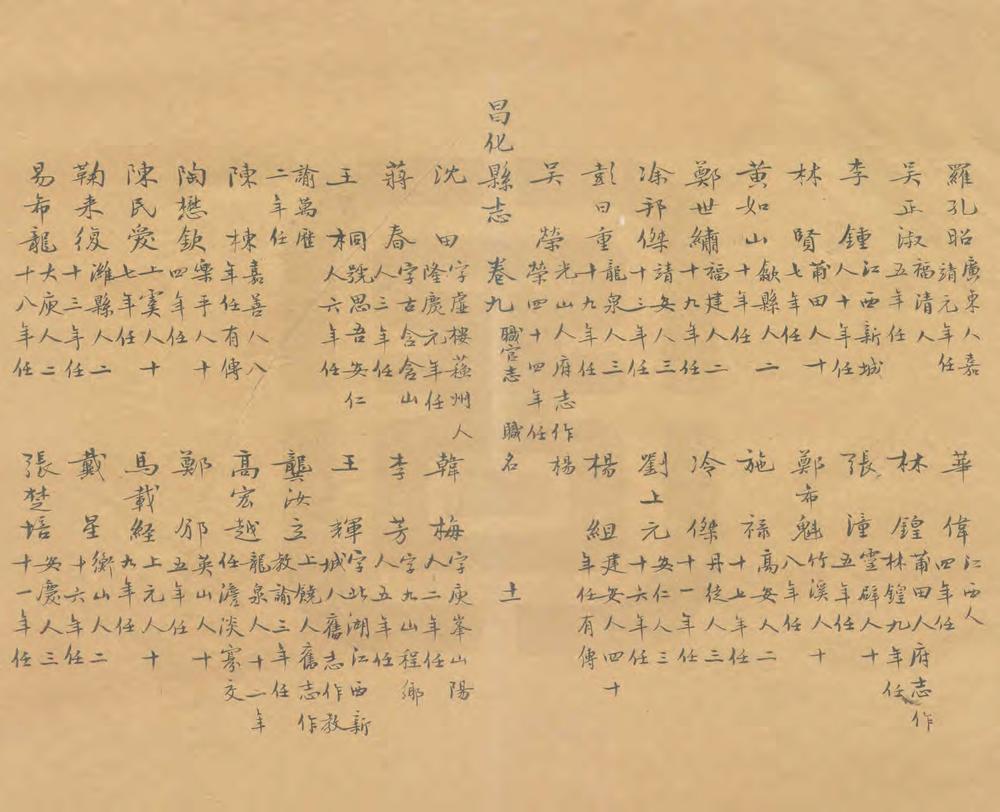 羅孔昭 廣東人嘉靖元年任
華偉 江西人四年任
吳正淑 福清人五年任
林鍠 莆田人府志作林鍠九年任
李鍾 江西新城人十年任
張潼 靈辟人十五年任
林賢 莆田人十七年任
鄭希魁 竹溪人十八年任
黃如山 歙縣人二十年任
施祿 高安人二十上年任
鄭世繡 福建人二十九年任
冷傑 丹徒人三十一年任
凃邦傑 靖安人三十三年任
劉上元 安仁人三十六年任
彭日重 龍泉人三十九年任
楊組 建安人四十年任有傳
吳榮 光山人府志作楊榮四十四年任
昌化縣志 卷九 職官志 職名 十一
沈田 字虛樓蘓州人隆慶元年任
韓梅 字庾峯山陽人二年任
蔣春 字古含含山人三年任
李芳 字九山程鄉人五年任
王桐 號思吾安仁人六年任
王輝 字北湖江西新城人舊志作教
諭萬曆二年任
龔汝立 上饒人舊志作教諭三年任
陳棟 嘉善人八八年任有傳
高宏越 龍泉人十二年任澹淡寡交
陶懋欽 樂平人十四年任
鄭邠 英山人十五年任
陳民愛 上虞人十七年任
馬載経 上元人十九年任
鞠来復 濰縣人二十三年任
戴星 衡山人二十六年任
易布龍 大庾人二十八年任
張楚培 安慶人三十一年任